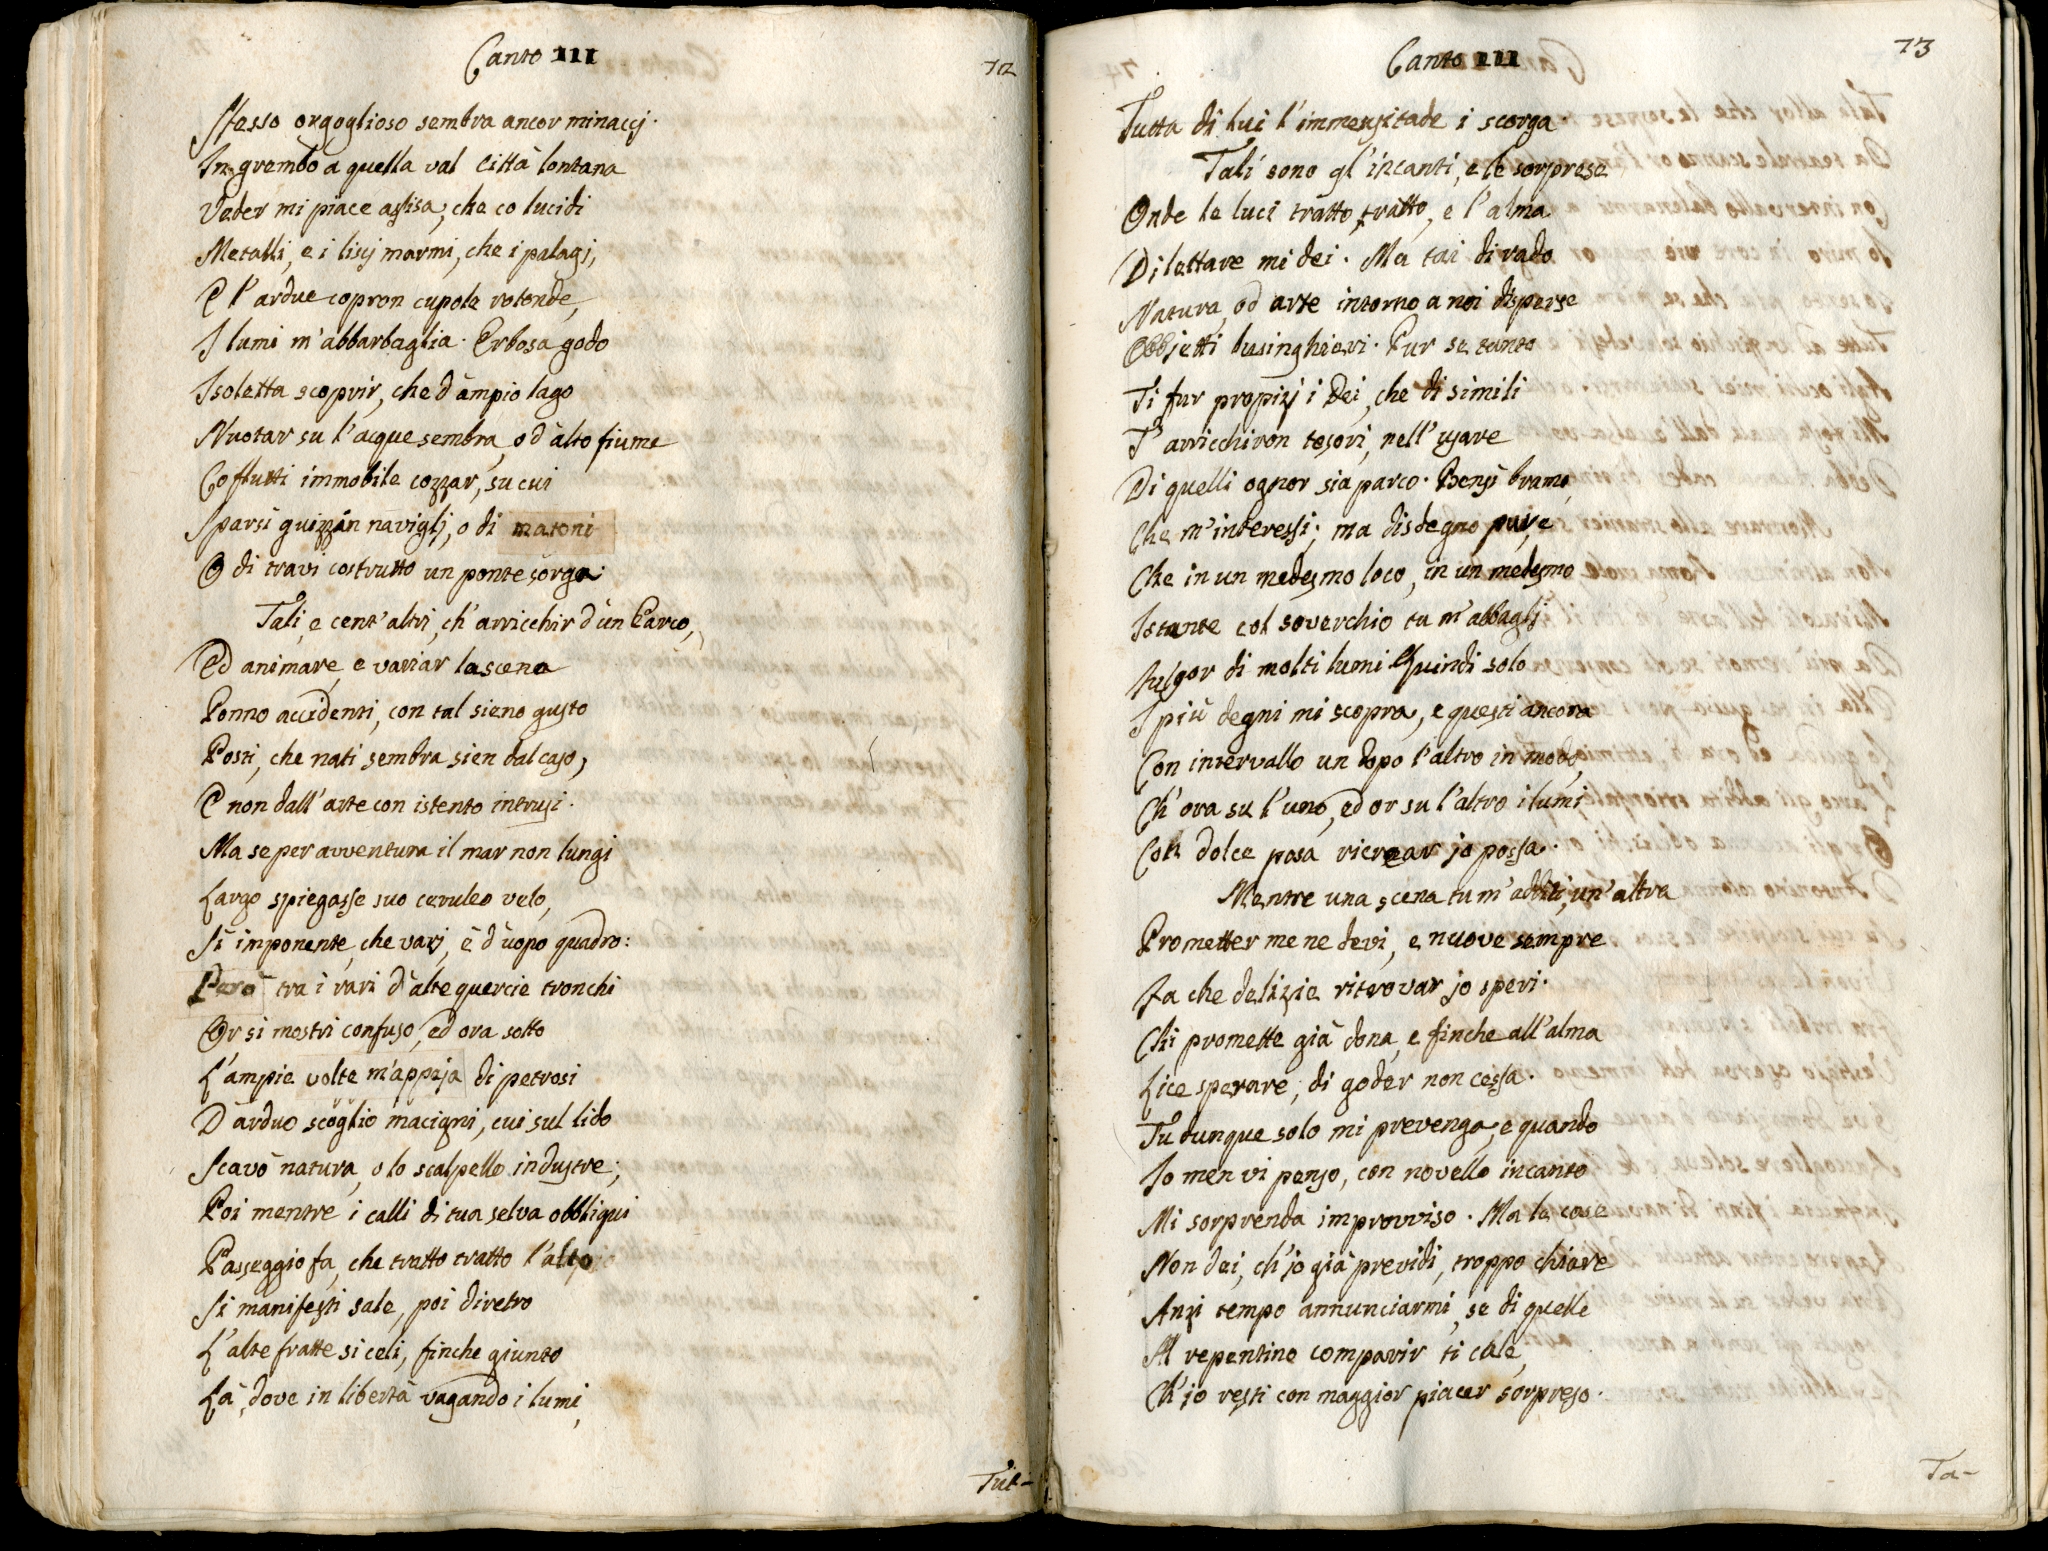 Canto III
72
Stesso orgoglioso sembra ancor minaccj.
In grembo a quella val Città lontana
Veder mi piace assisa, che co lucidi
Metalli, e i liscj marmi, che i palagj,
E l'ardue copron cupole rotonde,
I lumi m'abbarbaglia. Erbosa godo
Isoletta scoprir, che d'ampio lago
Nuotar su l'acque sembra, o d'alto fiume
Co flutti immobile cozzar, su cui
Sparsi guizzin naviglj, o di matoni
O di travi costrutto un ponte sorga.
Tali, e cent'altri, ch'arricchir d'un Parco,
Ed animare, e variar la scena
Ponno accidenti, con tal sieno gusto
Posti, che nati sembra sien dal caso,
E non dall'arte con istento intrusi.
Ma se per avventura il mar non lungi
Largo spiegasse suo ceruleo velo,
Sì imponente, che varj, è d'uopo quadro:
Però tra i rari d'alte quercie tronchi
Or si mostri confuso, ed ora sotto
L'ampie volte m'appaja di petrosi
D'arduo scoglio macigni, cui sul lido
Scavò natura, o lo scalpello industre;
Poi mentre i calli di tua selva obbliqui
Passeggio fa, che tratto tratto l'alto
Si manifesti sale, poi dietro
L'alte fratte si celi, finche giunto
Là, dove in libertà vagando i lumi,
Tut-
Canto III
73
Tutta di lui l'immensitade i scorga.
Tali sono gl'incanti, e le sorprese
Onde le luci tratto, tratto, e l'alma
Dilettare mi dei. Ma tai di rado
Natura, od arte intorno a noi disperse
Obbjetti lusinghieri. Pur se tanto
Ti fur propizj i Dei, che di simili
T'arricchiron tesori, nell'usare
Di quelli ognor sia parco. Bensì bramo,
Che m'interessi; ma disdegno pure,
Che in un medesmo loco, in un medesmo
Istante col soverchio tu m'abbaglj
Fulgor di molti lumi. Quindi solo
I più degni mi scopra, e questi ancora
Con intervallo un dopo l'altro in modo,
Ch'ora su l'uno, ed or su l'altro i lumi
Con dolce posa ricrear jo possa.
Mentre una scena tu m'additi, un'altra
Prometter me ne devi, e nuove sempre
Fa che delizie ritrovar jo speri.
Chi promette già dona, e finche all'alma
Lice sperare, di goder non cessa.
Tu dunque solo mi prevenga, e quando
Io men vi penso, con novello incanto
Mi sorprenda improvviso. Ma le cose
Non dei, ch'jo già previdi, troppo chiare
Anzi tempo annunciarmi, se di quelle
Al repentino comparir ti cale,
Ch'jo resti con maggior piacer sorpreso.
Ta-